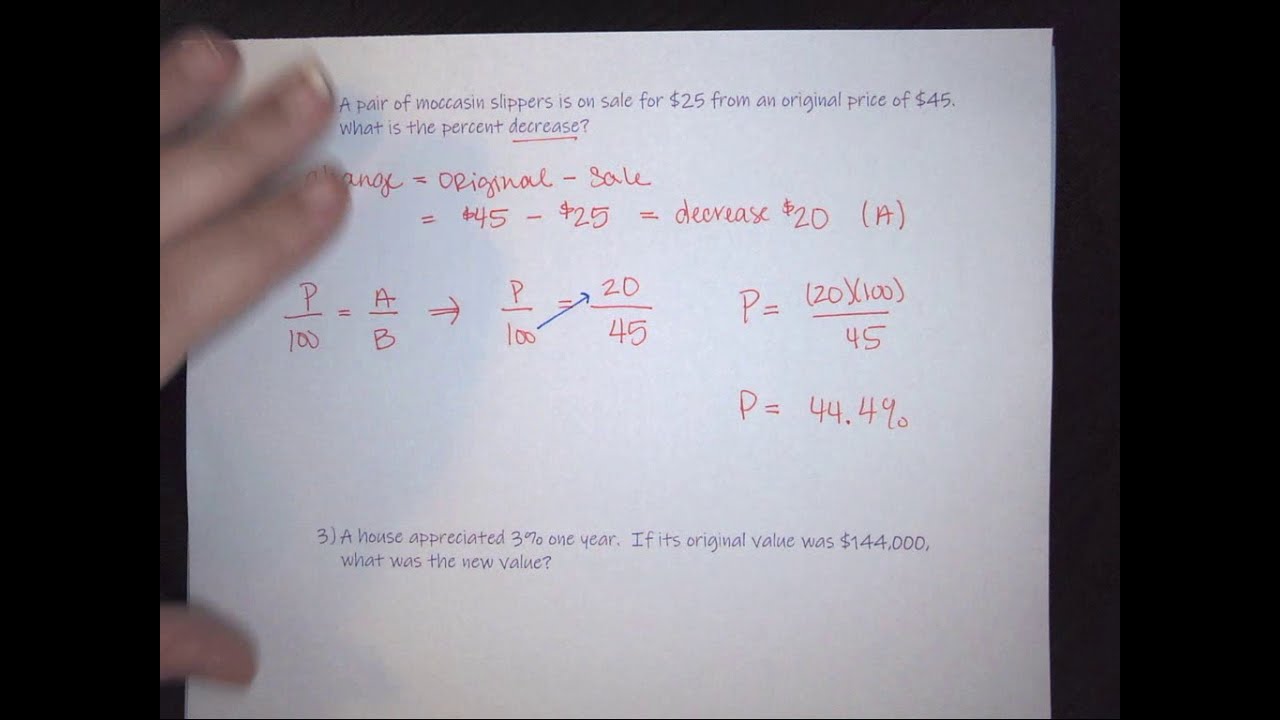 A pair of moccasin slippers is on sale for $25 from an original price of $45.
What is the percent decrease?
change = original - sale
= $45 - $25 = decrease $20 (A)
P/100 = A/B ⇒ P/100 = 20/45 P = (20)(100)/45
P = 44.4%
3) A house appreciated 3% one year. If its original value was $144,000,
what was the new value?